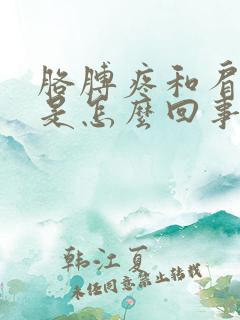 胳膊疼和肩
是怎麽回事
韩江夏
未经同意禁止转载